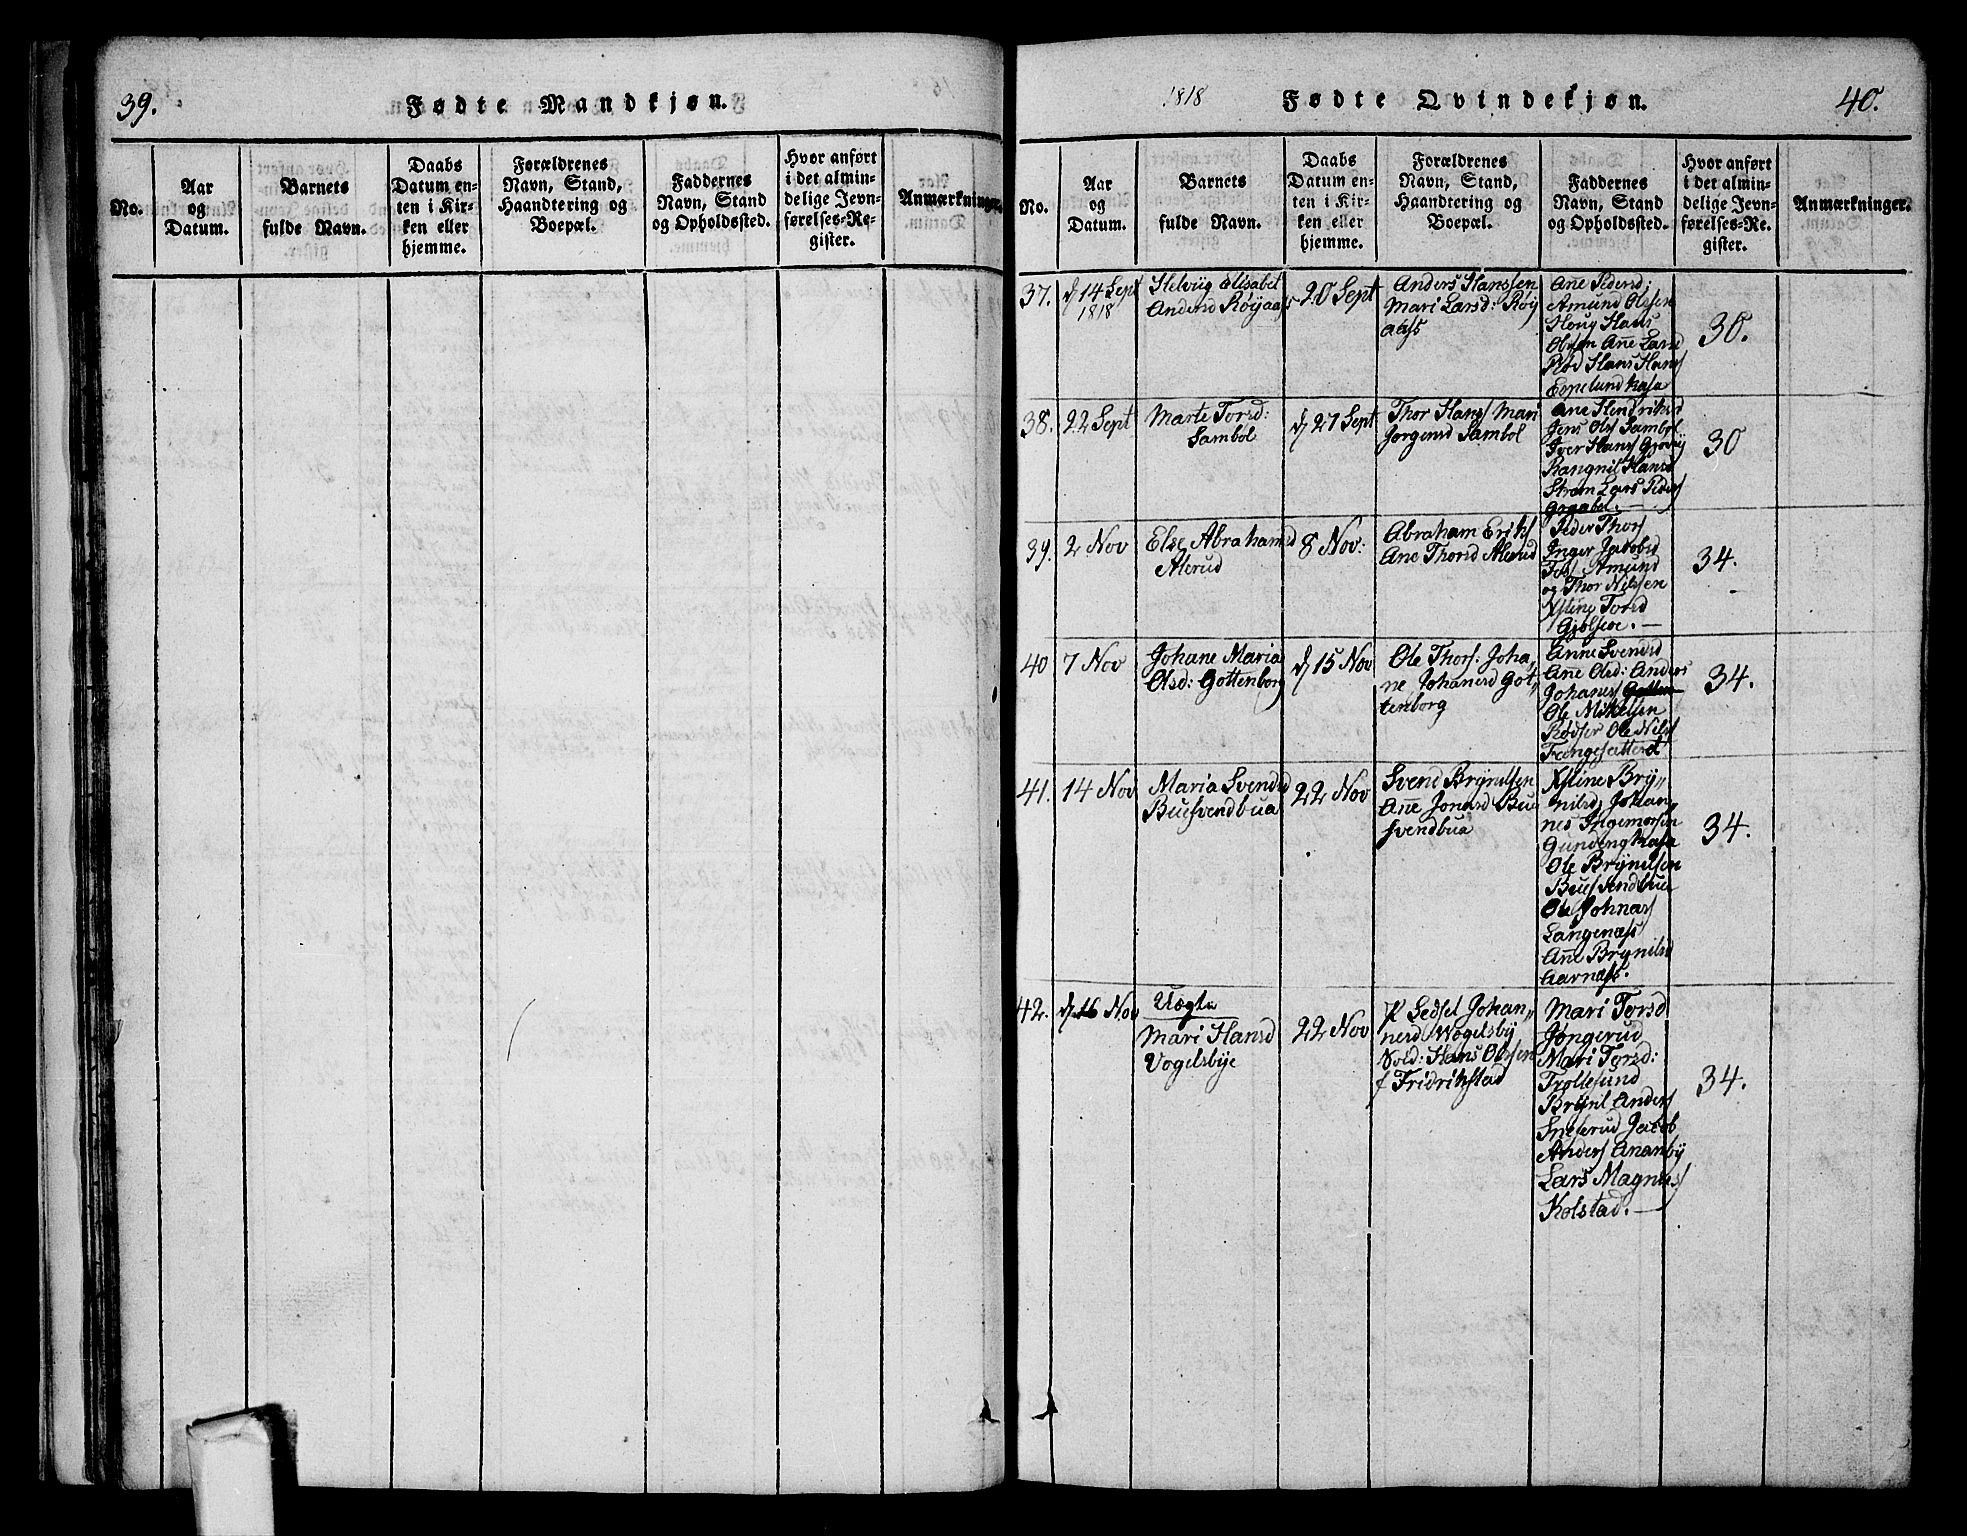 39.
Fødte Mandkjøn.
No.
Aar
og
Datum.
Barnets
fulde Navn.
Daabs
Datum en-
ten i Kir-
ken eller
hjemme.
Forældrenes
Navn, Stand,
Haandtering og
Boepæl.
Faddernes
Navn, Stand
og Opholdssted.
Hvor anført
i det almin-
delige Jevn-
førelses-Re-
gister.
Anmærkninger.
1818
Fødte Qvindekjøn.
40.
No.
Aar
og
Datum.
Barnets
fulde Navn.
Daabs
Datum en-
ten i Kir-
ken eller
hjemme.
Forældrenes
Navn, Stand,
Haandtering og
Boepæl.
Faddernes
Navn, Stand
og Opholdssted.
Hvor anført
i det almin-
delige Jevn-
førelses-Re-
gister.
Anmærkninger.
37.
14 Sept
1818
Helvig Elisabet
Andersd Röyaas
20 Sept
Anders Hanssen
Mari Larsd: Röy
aass
Añe Pedersd;
Amund Olssen
Houg Hans
Olssen Añe Larsd
Röd Hans Hans
30.
38.
22 Sept
Marte Torsd:
Samböl
27 Sept
Thor Hans Mari
Jörgensd Sambol
Ane Hendriksd
Jens Ols Sambol
Iver Hans
Rangnil Hansd
Ström Lars Peders
30
39.
2 Nov
Else Abrahamsd
Alerud
8 Nov:
Abraham Eriks
Ane Thorsd Alerud
Peder Thors
Inger Jacobsd
Amund
og Thor Nilssen
Torsd
34.
40
7 Nov
Johane Maria
Olsd: Gottenborg
15 Nov
Ole Thors: Joha„
ne Johanesd Got„
tenborg
Anne Svendsd
Añe Olsd: Anders
Johanes
Ole Mikelsen
Rödser Ole Nils
34.
41.
14 Nov
Maria Svendsd
Buesvendbua
22 Nov
Svend Brÿnilsen
Añe Jonasd Bue
svendbua
Brÿ„
nilsd; Johan„
nes Ingemorsen
Ole Brÿnilsen
Ole Johnas
Langenæss
Añe Brÿnilsd
Aarnæss.
34.
42.
16 Nov
Uægte
Mari Hansd
Vogelsbÿe
22 Nov
Sedsel Johan„
nesd Wogelsby
Sold: Hans Olssen
f Fridrikstad
Mari Torsd
Jöngerud
Mari Torsd:
Trollesund
Brÿnil Anders
Snelerud Jacob
Anders Ananbÿ
Lars Magnus
Kolstad.
34.